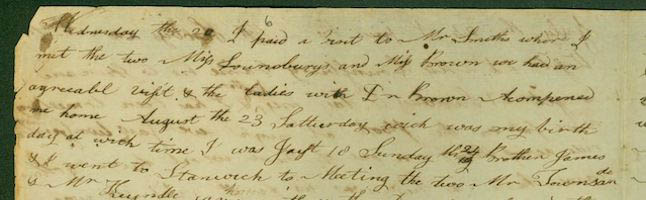 Wednesday the 20 I paid a visit to Mr Smiths where I
met the two Miss Lounsburys and Miss Brown we had an
agreeabl visit & the ladies with Dr Brown Acompened
me home August the 23 Satturday wich was my birth
day at wich time I was Just 18 Sunday the 24 Brother James
& I went to Stanwich to Meeting the two Mr Townsen
& Mr